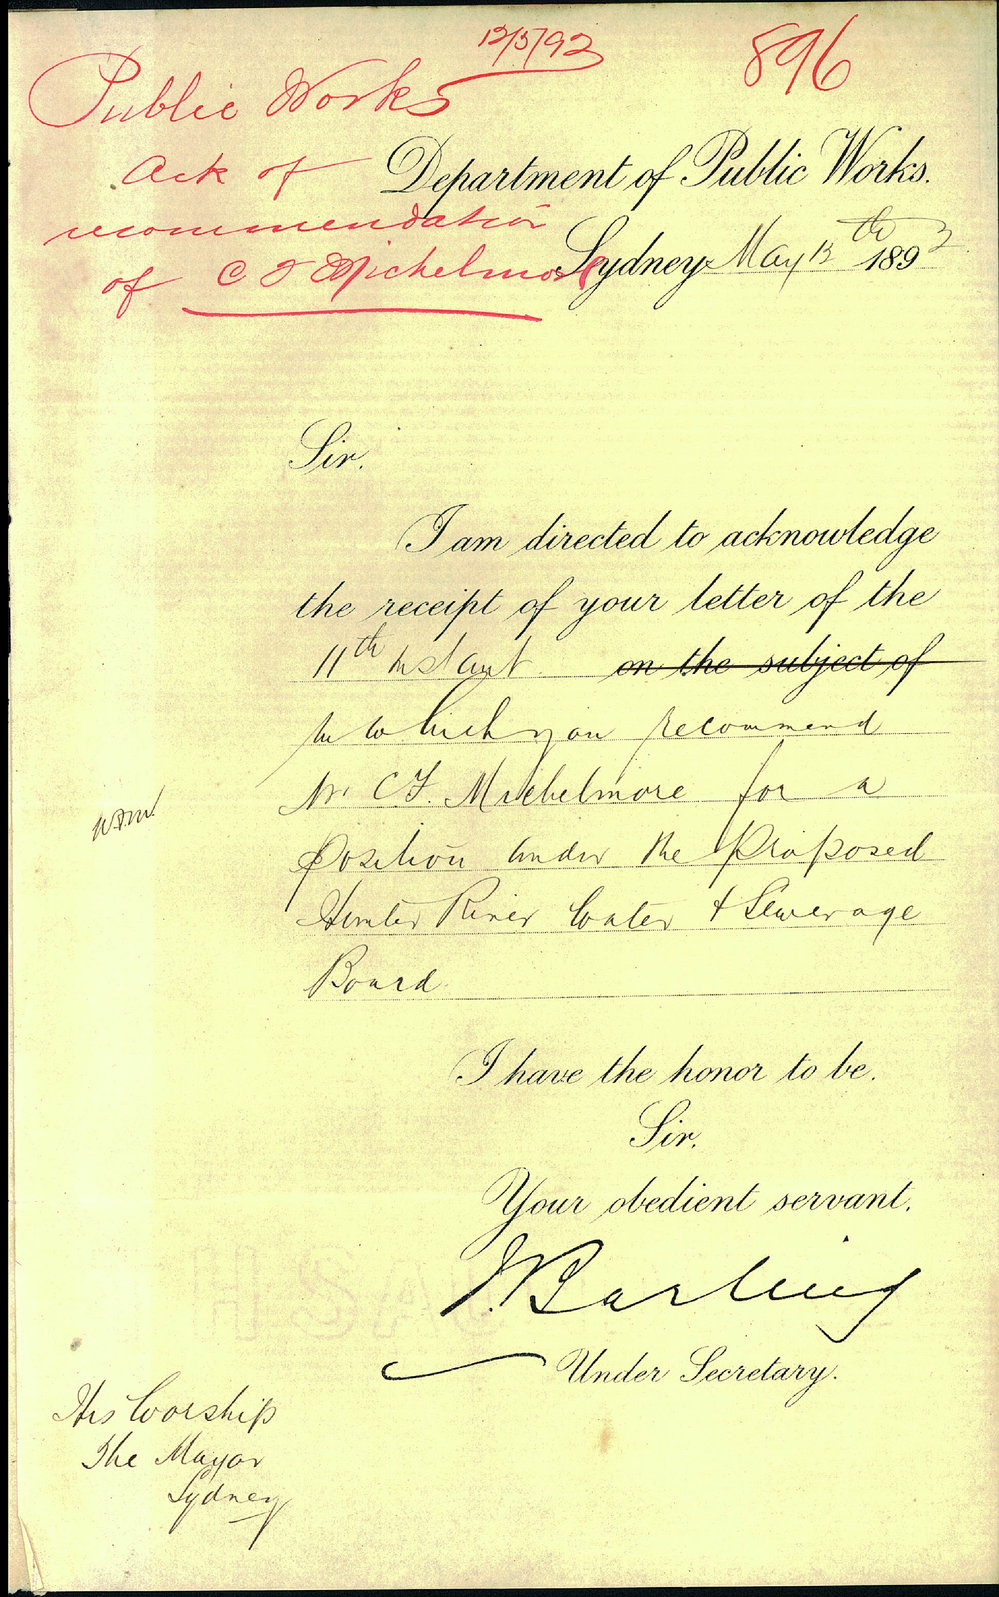 12/5/92
896
Public Works
Ack of
recommendation
of C F Michelmore
Department of Public Works.
Sydney May 12th 1892
Sir.
I am directed to acknowledge
the receipt of your letter of the
11th Instant on the subject of
in which you recommend
Mr. C F. Michelmore for a
Position under the Proposed
Hunter River Water & Sewerage
Board
I have the honor to be.
Sir.
Your obedient servant.
J. Barling
Under Secretary.
His Worship
The Mayor
Sydney